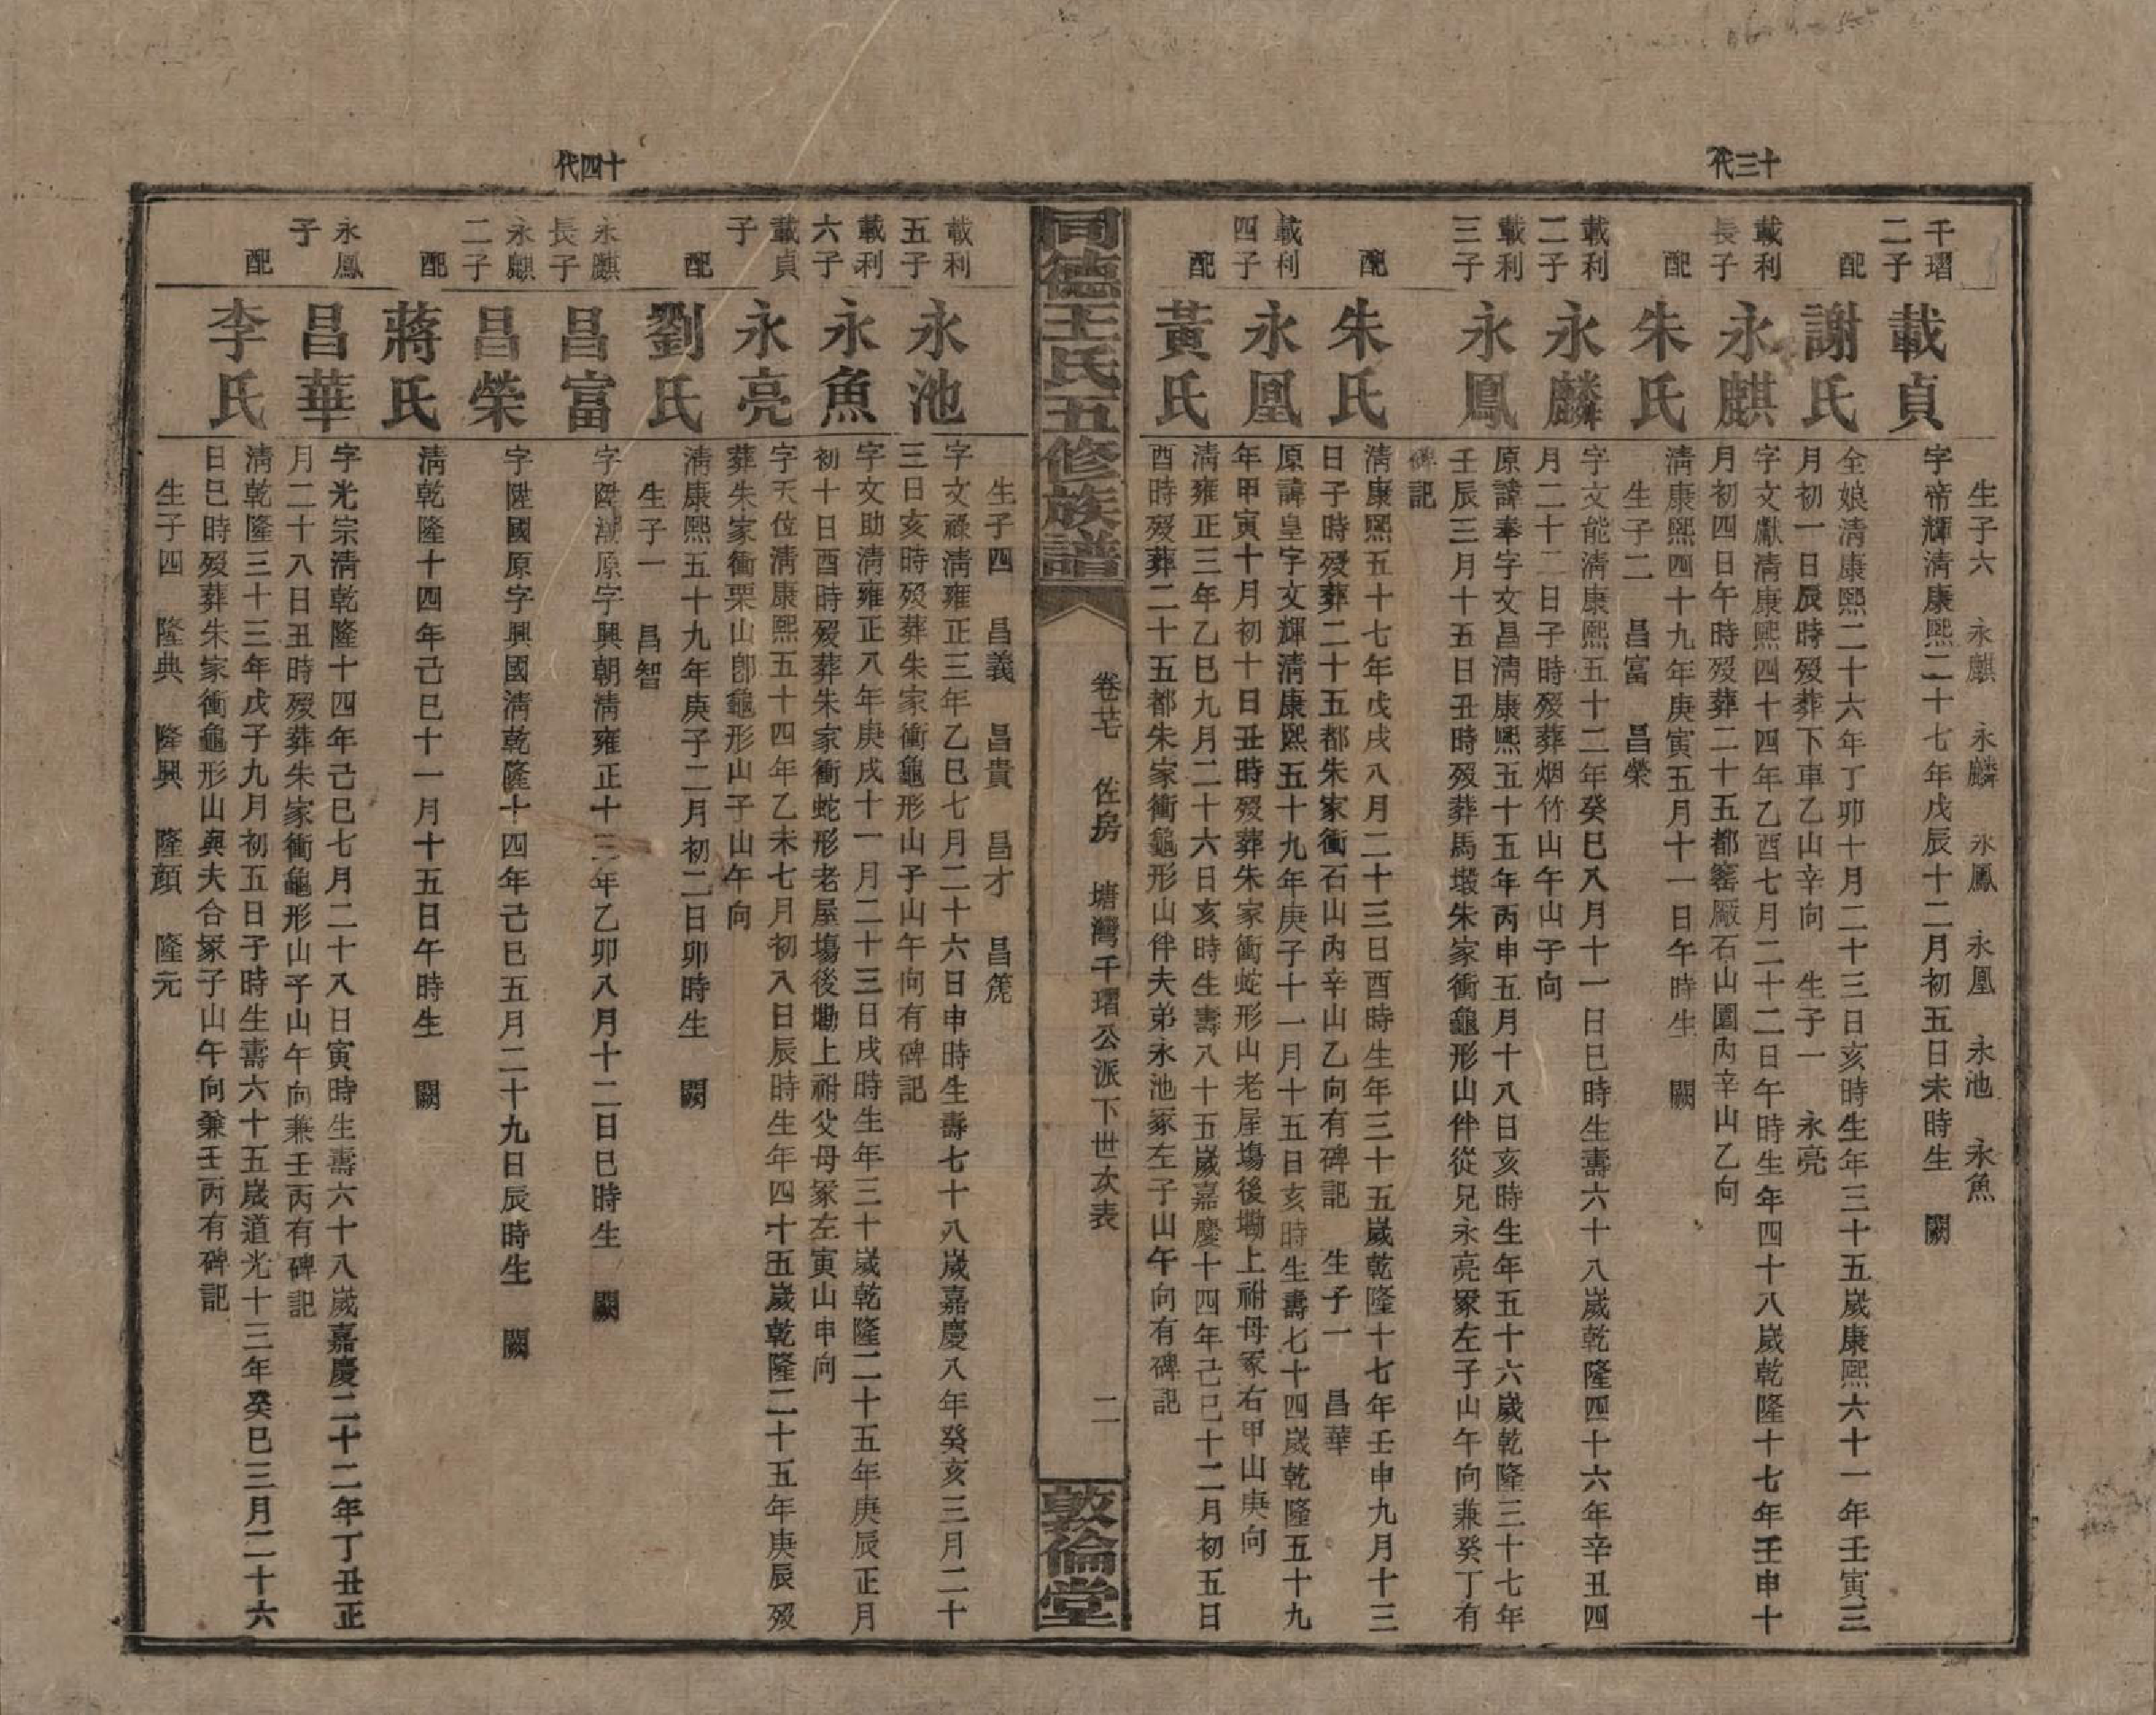 十三代
生子六　永麒　永麟　永鳳　永凰　永池　永魚
千瑁二子
載貞
字帝輝清康熙二十七年戊辰十二月初五日未時生　闕
配
謝氏
全娘清康熙二十六年丁卯十月二十三日亥時生年三十五歲康熙六十一年壬寅三
月初一日辰時歿葬下車乙山辛向　生子一　永亮
載利長子
永麒
字文獻清康熙四十四年乙酉七月二十二日午時生年四十八歲乾隆十七年壬申十
月初四日午時歿葬二十五都窰厰石山園丙辛山乙向
配
朱氏
清康熙四十九年庚寅五月十一日午時生　闕
生子二　昌富　昌榮
載利二子
永麟
字文能清康熙五十二年癸巳八月十一日巳時生壽六十八歲乾隆四十六年辛丑四
月二十二日子時歿葬烟竹山午山子向
載利三子
永鳳
原諱奉字文昌清康熙五十五年丙申五月十八日亥時生年五十六歲乾隆三十七年
壬辰三月十五日丑時歿葬馬塅朱家衝龜形山伴從兄永亮冢左子山午向兼癸丁有
碑記
配
朱氏
清康熙五十七年戊戌八月二十三日酉時生年三十五歲乾隆十七年壬申九月十三
日子時歿葬二十五都朱家衝石山內辛山乙向有碑記　生子一　昌華
載利四子
永凰
原諱皇字文輝清康熙五十九年庚子十一月十五日亥時生壽七十四歲乾隆五十九
年甲寅十月初十日丑時歿葬朱家衝蛇形山老屋塲後墈上祔母冢右甲山庚向
配
黃氏
清雍正三年乙巳九月二十六日亥時生壽八十五歲嘉慶十四年己巳十二月初五日
酉時歿葬二十五都朱家衝龜形山伴夫弟永池冢左子山午向有碑記
同德王氏五修族譜
卷廿　佐房　塘灣千瑁公派下世次表
二
敦倫堂
生子四　昌義　昌貴　昌才　昌箎
載利五子
永池
字文祿清雍正三年乙巳七月二十六日申時生壽七十八歲嘉慶八年癸亥三月二十
三日亥時歿葬朱家衝龜形山子山午向有碑記
載利六子
永魚
字文助清雍正八年庚戌十一月二十三日戌時生年三十歲乾隆二十五年庚辰正月
初十日酉時歿葬朱家衝蛇形老屋塲後墈上祔父母冢左寅山申向
載貞子
永亮
字天位清康熙五十四年乙未七月初八日辰時生年四十五歲乾隆二十五年庚辰歿
葬朱家衝栗山卽龜形山子山午向
配
劉氏
清康熙五十九年庚子二月初二日卯時生　闕
生子一　昌智
十四代
永麒長子
昌富
字陞潮原字興朝清雍正十三年乙卯八月十二日巳時生　闕
永麒二子
昌榮
字陞國原字興國清乾隆十四年己巳五月二十九日辰時生　闕
配
蔣氏
清乾隆十四年己巳十一月十五日午時生　闕
永鳳子
昌華
字光宗清乾隆十四年己巳七月二十八日寅時生壽六十八歲嘉慶二十二年丁丑正
月二十八日丑時歿葬朱家衝龜形山子山午向兼壬丙有碑記
配
李氏
清乾隆三十三年戊子九月初五日子時生壽六十五歲道光十三年癸巳三月二十六
日巳時歿葬朱家衝龜形山與夫合冢子山午向兼壬丙有碑記
生子四　隆典　隆興　隆顔　隆元